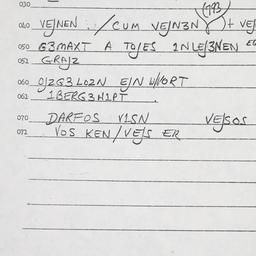 030
(793)
040 VEJNEN : / CUM VEJN3N )+ VEJ
050 G3MAXT A TOJES 1NLEJ3NEN EG
051 GRAJZ
060 OJZG3LOZN EJN WORT
061 1BERG3H1PT
070 DARFOS V1SN VEJSOS
071 VOS KEN/VEJS ER